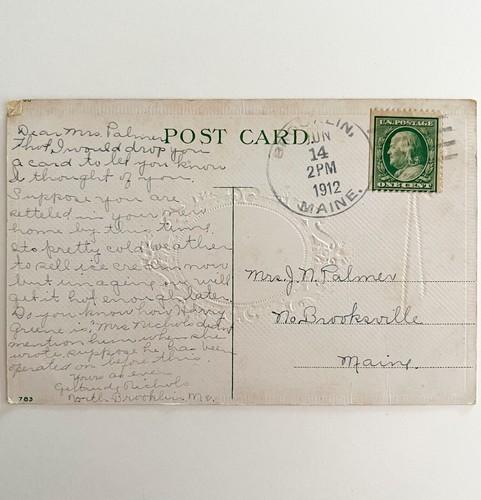 Dear Mrs. Palmer
Thot I would drop you
a card to let you know
I thought of you.
Suppose you are
settled in your new
home by this time.
Its pretty cold weather
to sell ice cream now
but imagine will
get it hot enough later.
Do you know how Henry
Greene is? Mrs Nichols didn't
mention him when she
wrote, suppose he has been
operated on before this.
Yours as ever
Gertrude Nichols
North Brooklin, Me.
POST CARD
BROOKLIN,
JUN
14
2PM
1912
MAINE.
U.S. POSTAGE
ONE CENT
Mrs J. N. Palmer
No. Brooksville
Maine.
783